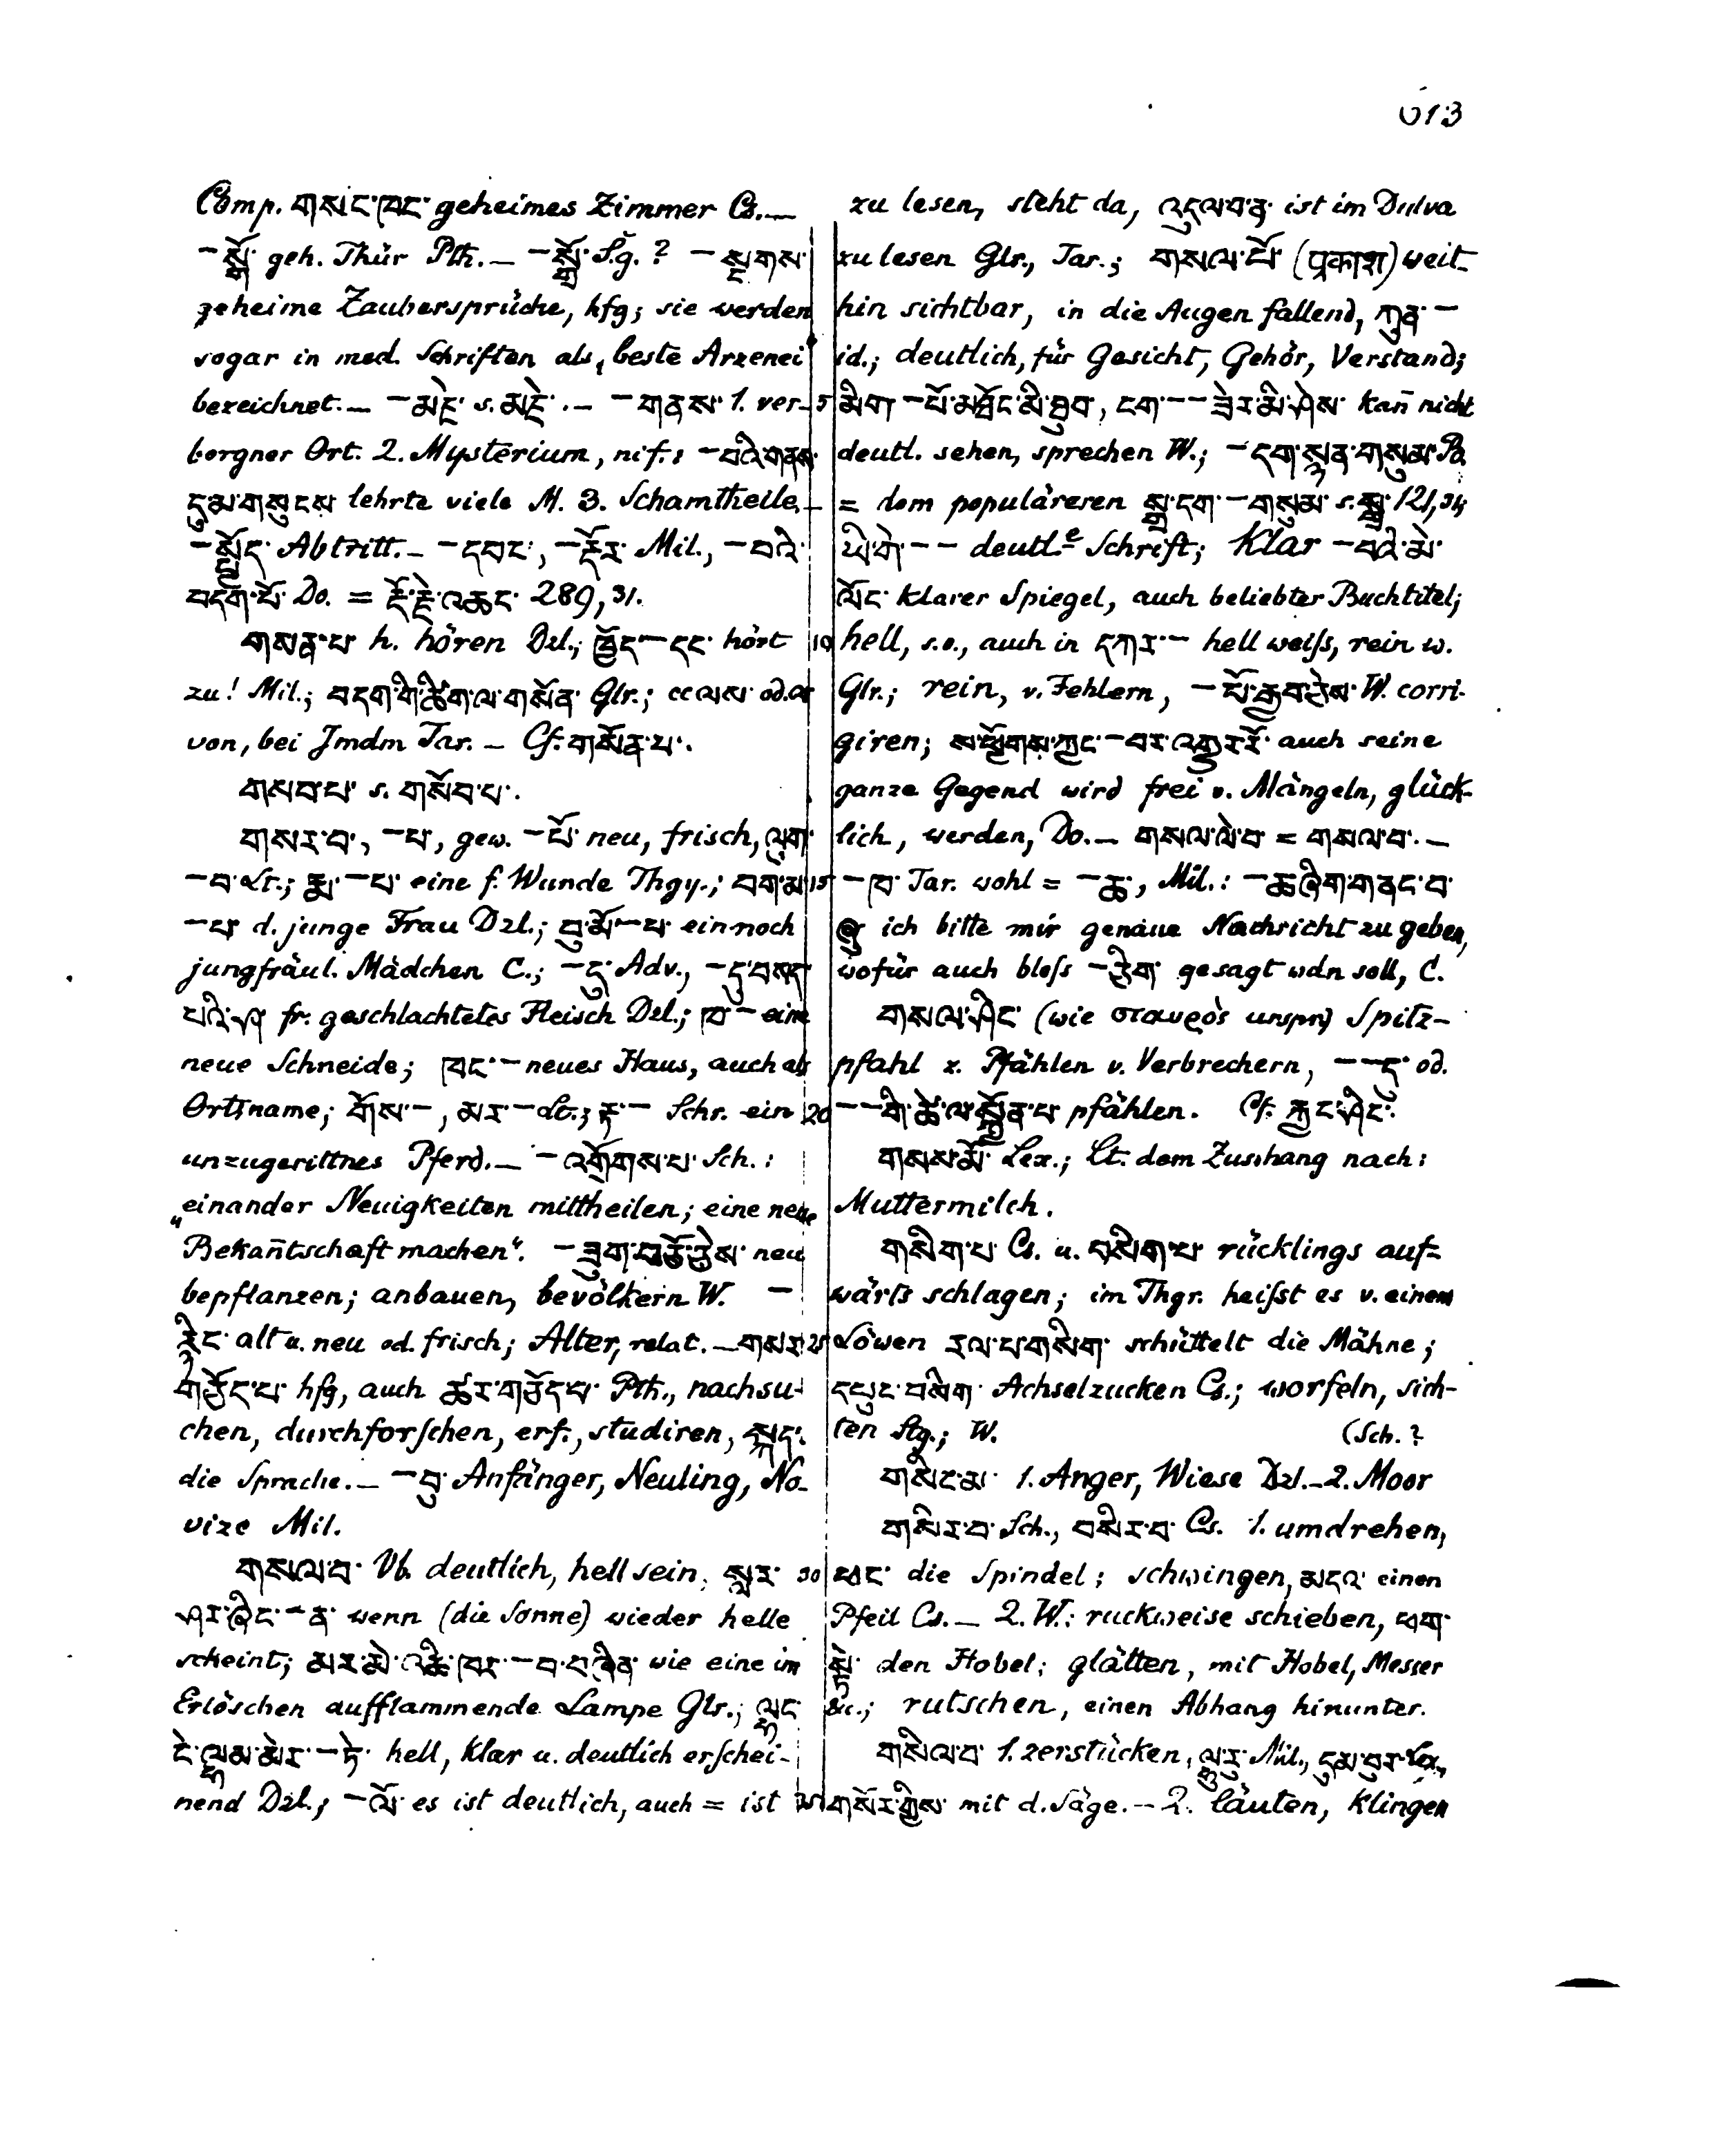 613
Comp. གསང་ཁང་ geheimes Zimmer Cs.—
—སྒོ་ geh. Thür Pth.— —སྒྲོ་ S.g.? —སྔགས་
geheime Zaubersprüche, hfg; sie werden
sogar in med. Schriften als beste Arzenei
bezeichnet.— —མཛེ་ s. མཛེ་.— —གནས་ 1. ver-
borgner Ort. 2. Mysterium, nif.: —བའི་གནས་
དུ་མ་གསུངས lehrte viele M. 3. Schamtheile.—
—སྤྱོད་ Abtritt.— —དབང་, —རྡོར་ Mil., —བའི་
བདག་པོ་ Do. = རྡོ་རྗེ་འཆང་ 289,31.
གསན་པ་ h. hören Dzl.; ཁྱོད—དང་ hört
zu! Mil.; བདག་གི་ཚིག་ལ་གསོན་ Glr.; cc ལས་ od. ལ་
von, bei Jmdm Tar.— Cf. གསོན་པ་.
གསབ་པ་ s. གསོབ་པ་.
གསར་བ་, —པ་, gew. —པོ་ neu, frisch, ལུག་
—བ་ Lt.; རྨ་—པ་ eine f. Wunde Thgy.; བག་མ་
—པ་ d. junge Frau Dzl.; བུ་མོ་—པ་ ein noch
jungfräul. Mädchen C.; —དུ་ Adv., —དུ་བསད་
པའི་ཤ་ fr. geschlachtetes Fleisch Dzl.; ཁ་— eine
neue Schneide; ཁང་— neues Haus, auch als
Ortsname; གོས་—, མར་— Lt.; རྟ་— Schr. ein
unzugerittnes Pferd.— —འགྲོགས་པ་ Sch.:
„einander Neuigkeiten mittheilen; eine neue
Bekañtschaft machen“. —ཟུག་ neu
bepflanzen; anbauen, bevölkern W. —
རྙིང་ alt u. neu od. frisch; Alter, relat.—གསར་
གཅོད་པ་ hfg, auch ཚར་གཅོད་པ་ Pth., nachsu-
chen, durchforschen, erf., studiren, སྐད་
die Sprache.— —བུ་ Anfänger, Neuling, No-
vize Mil.
གསལ་བ་ Vb. deutlich, hell sein, སླར་
ཤར་ཞིང་—ན་ wenn (die Sonne) wieder helle
scheint; མར་མེ་འཆི་ཁར་—བ་བཞིན་ wie eine im
Erlöschen aufflammende Lampe Glr.; ལྷང་
ངེ་ལྷམ་མེར་—ཏེ་ hell, klar u. deutlich erschei-
nend Dzl.; —ལོ་ es ist deutlich, auch = ist
zu lesen, steht da, འདུལ་བ་ན་ ist im Dulva
zu lesen Glr., Tar.; གསལ་པོ་ (प्रकाश) weit-
hin sichtbar, in die Augen fallend, ཀུན་—
id.; deutlich, für Gesicht, Gehör, Verstand;
མིག་—པོ་མཐོང་མི་ཐུབ་, ངག་——ཟེར་མི་ཤེས་ kañ nicht
deutl. sehen, sprechen W.; —དག་སྙན་གསུམ་
= dem populäreren སྒྲ་དག་—གསུམ་ s. སྒྲ་ 121,34;
ཡི་གེ་—— deutl.e Schrift; klar —བའི་མེ་
ལོང་ klarer Spiegel, auch beliebter Buchtitel;
hell, s.o., auch in དཀར་— hell weiſs, rein w.
Glr.; rein, v. Fehlern, —པོ་རྒྱབ་ཅེས་ W. corri-
giren; ས་ཕྱོགས་ཀྱང་—བར་འགྱུར་རོ་ auch seine
ganze Gegend wird frei v. Mängeln, glück-
lich, werden, Do.— གསལ་ལེ་བ་ = གསལ་བ་.—
—ཁ་ Tar. wohl = —ཆ་, Mil.: —ཆ་ཞིག་གནང་བ་
ཞུ་ ich bitte mir genaue Nachricht zu geben,
wofür auch bloſs —ཅིག་ gesagt wdn soll, C.
གསལ་ཤིང་ (wie σταυρὸς urspr.) Spitz-
pfahl z. Pfählen v. Verbrechern, ——ད་ od.
——གི་ཚེ་ལ་སྐྱོན་པ་ pfählen. Cf. རྒྱང་ཤིང་.
གསས་མོ་ Lex.; Lt. dem Zushang nach:
Muttermilch.
གསིག་པ་ Cs. u. བསིག་པ་ rücklings auf-
wärts schlagen; im Thgr. heiſst es v. einem
Löwen རལ་པ་གསིག་ schüttelt die Mähne;
དཔུང་བསིག་ Achselzucken Cs.; worfeln, sich-
ten Stg.; W. (Sch.?
གསིང་མ་ 1. Anger, Wiese Dzl.—2. Moor
གསིར་བ་ Sch., བསིར་བ་ Cs. 1. umdrehen,
ཕང་ die Spindel; schwingen, མདའ་ einen
Pfeil Cs.— 2. W.: ruckweise schieben, ཕག་
སྟེ་ den Hobel; glätten, mit Hobel, Messer
&c.; rutschen, einen Abhang hinunter.
གསིལ་བ་ 1. zerstücken, ལྷུ་རུ་ Mil., དུམ་བུར་ Lex.,
གསོར་གྱིས་ mit d. Säge.—2. läuten, klingen
5
10
15
20
25
30
35